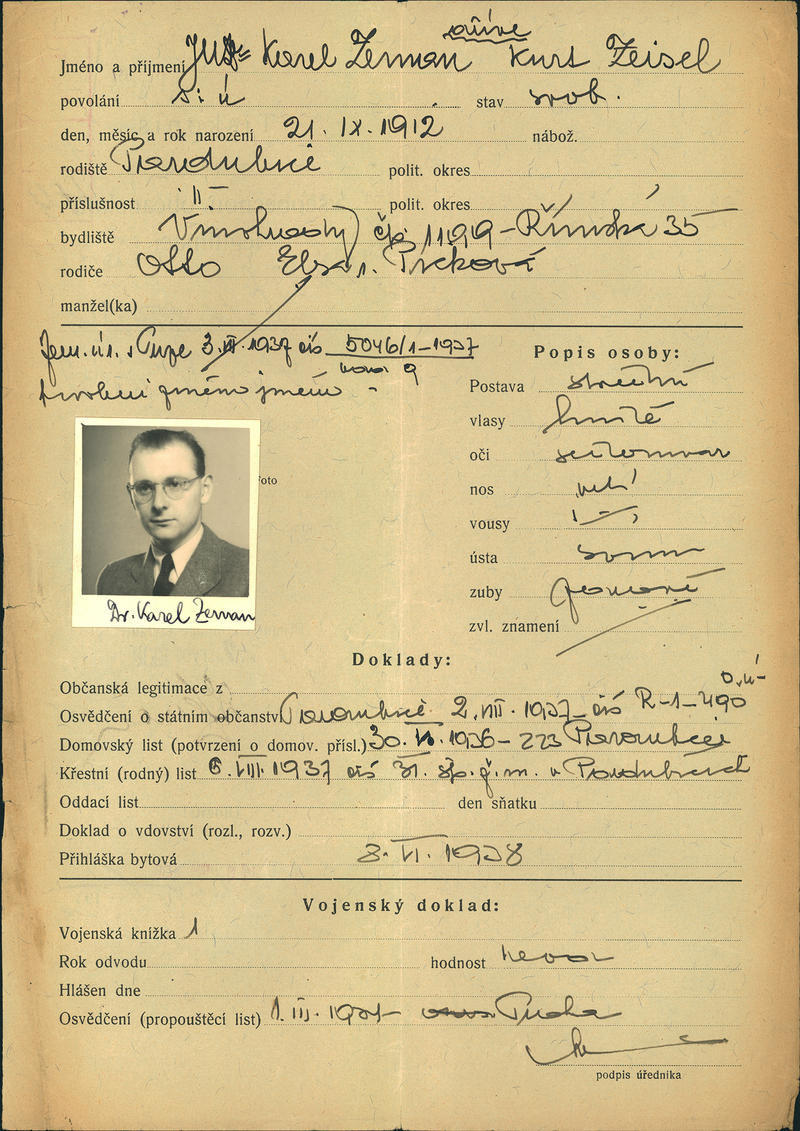 dříve
Jméno a příjmení JUDr Karel Zeman Kurt Zeisel
povolání s. ú stav svob.
den, měsíc a rok narození 21. IX. 1912 nábož.
rodiště Pardubice polit. okres
příslušnost polit. okres
bydliště Vinohrady čp 1199 - Římská 35
rodiče Otto Elsa r. Picková
manžel(ka)
1937 čís 5046/1-1937
jméno
Popis osoby:
Postava střední
vlasy hnědé
oči
nos
vousy
ústa
zuby
zvl. znamení
Foto
Dr. Karel Zeman
Doklady:
Občanská legitimace z
Osvědčení o státním občanství Pardubice 2. VIII. 1937 - čís R-1-490
Domovský list (potvrzení o domov. přísl.) 30. 1936 - 223 Pardubice
Křestní (rodný) list 6. VIII. 1937 čís 31. v Pardubicích
Oddací list den sňatku
Doklad o vdovství (rozl., rozv.)
Přihláška bytová 3. VI. 1938
Vojenský doklad:
Vojenská knížka 1
Rok odvodu hodnost
Hlášen dne
Osvědčení (propouštěcí list) 1. III. Praha
podpis úředníka